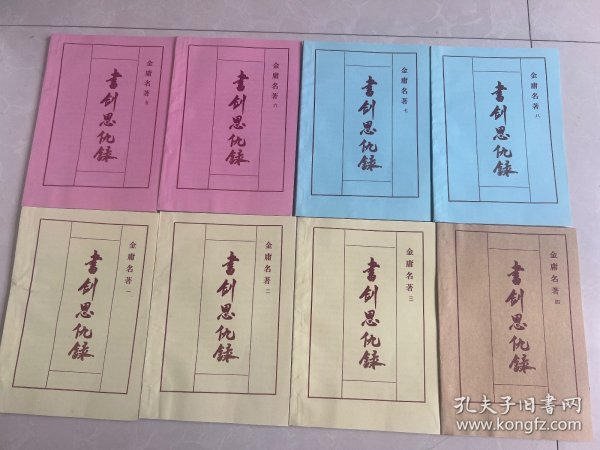 金庸名著 五
書劍恩仇錄
金庸名著 六
書劍恩仇錄
金庸名著 七
書劍恩仇錄
金庸名著 八
書劍恩仇錄
金庸名著 一
書劍恩仇錄
金庸名著 二
書劍恩仇錄
金庸名著 三
書劍恩仇錄
金庸名著 四
書劍恩仇錄
孔夫子旧書网
www.kongfz.com